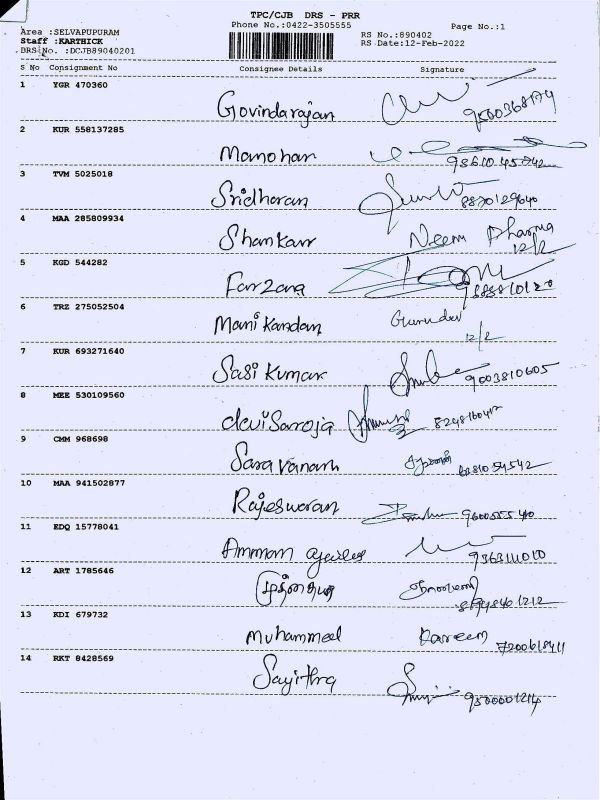 TPC/CJB DRS - PRR
Phone No.:0422-3505555
Page No.:1
Area :SELVAPUPURAM
Staff :KARTHICK
DRS No. :DCJB89040201
RS No.:890402
RS Date:12-Feb-2022
S No Consignment No Consignee Details Signature
1 YGR 470360 Govindarajan
2 KUR 558137285 Manohar
3 TVM 5025018 Sridharan 8870129640
4 MAA 285809934 Shankar Neem Dharma
12/2
5 KGD 544282 Farzana
6 TRZ 275052504 Manikandan Gurudev
12/2
7 KUR 693271640 Sasikumar 9003810605
8 MEE 530109560 devi Saroja 8248160417
9 CMM 968698 Saravanan 6281054542
10 MAA 941502877 Rajeswaran 9600555540
11 EDQ 15778041 Amman 9363111010
12 ART 1785646
13 KDI 679732 Muhammed Kareem 7200618411
14 RKT 8428569 Sayithra 9500001214